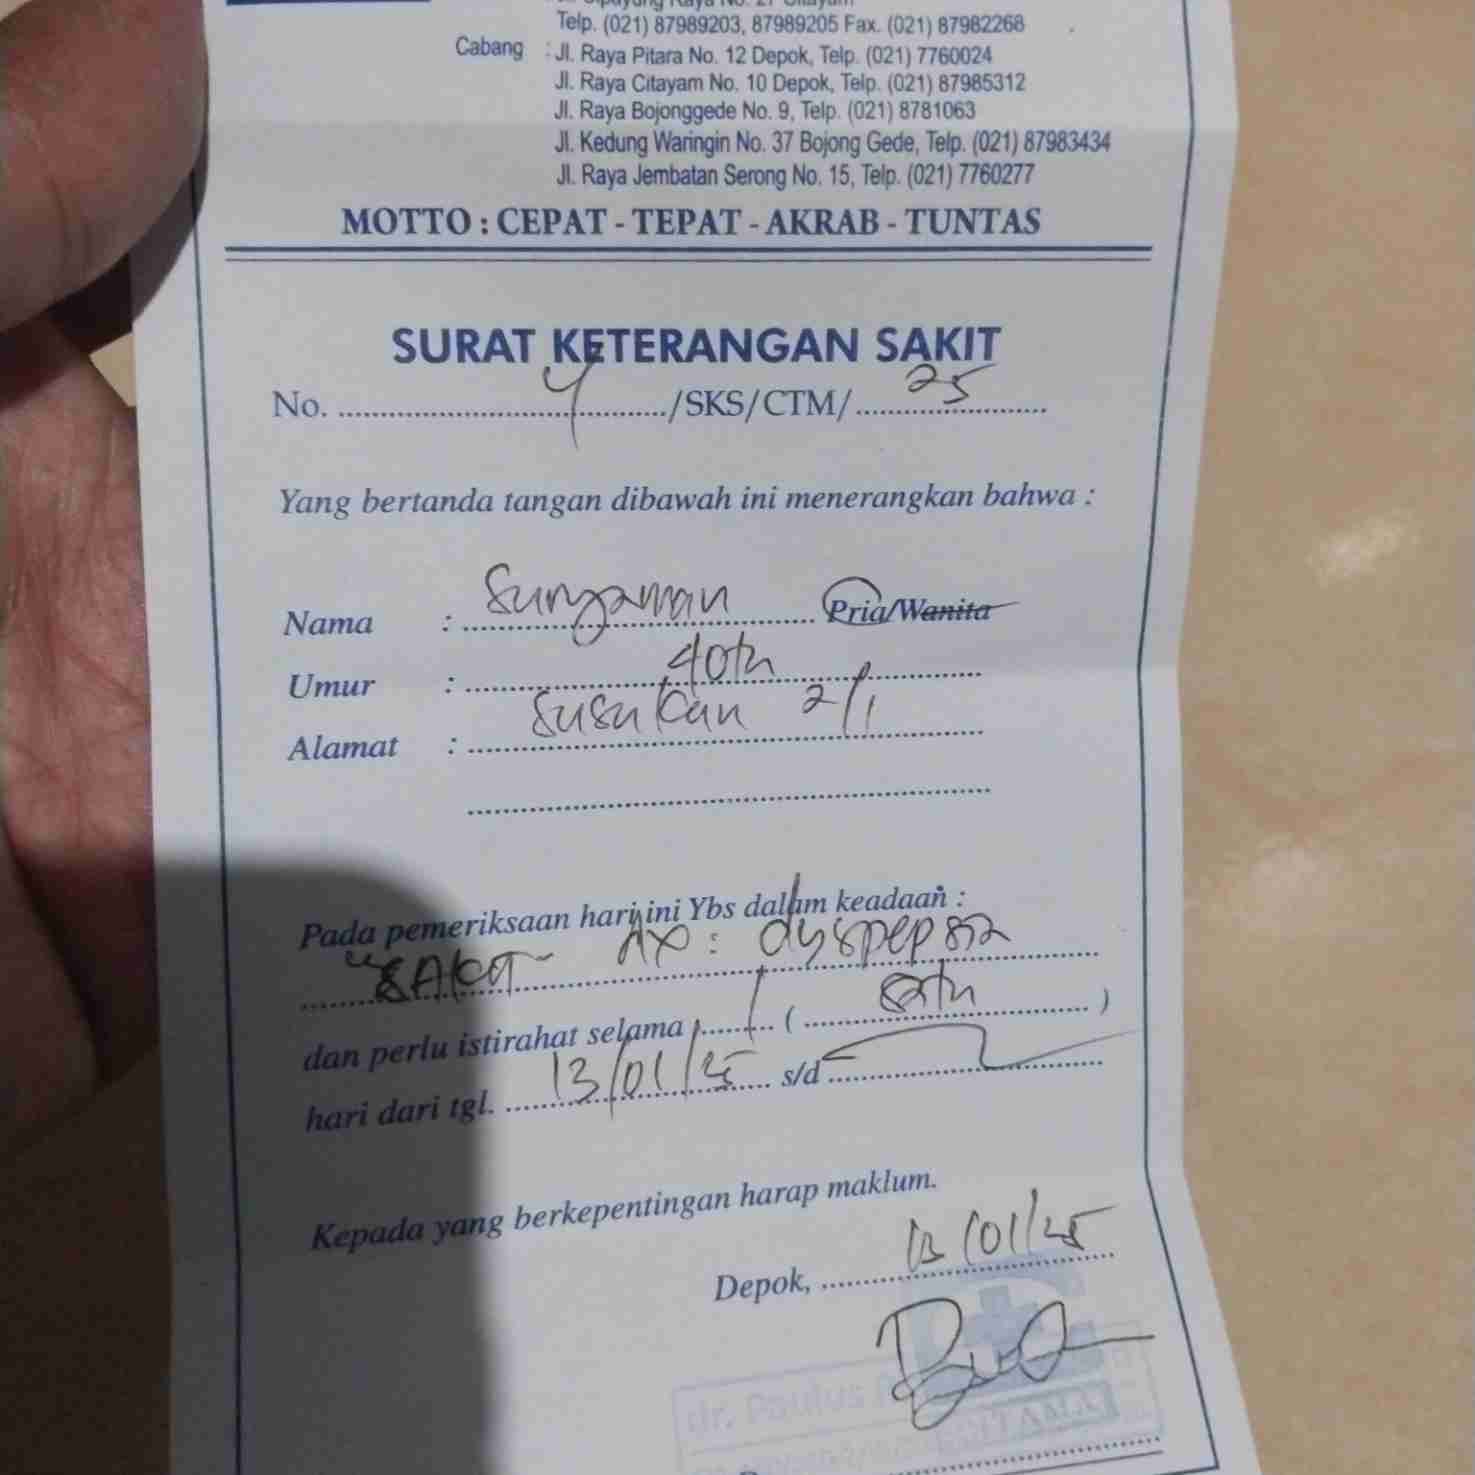 Telp. (021) 87989203, 87989205 Fax. (021) 87982268
Cabang : Jl. Raya Pitara No. 12 Depok, Telp. (021) 7760024
Jl. Raya Citayam No. 10 Depok, Telp. (021) 87985312
Jl. Raya Bojonggede No. 9, Telp. (021) 8781063
Jl. Kedung Waringin No. 37 Bojong Gede, Telp. (021) 87983434
Jl. Raya Jembatan Serong No. 15, Telp. (021) 7760277
MOTTO : CEPAT - TEPAT - AKRAB - TUNTAS
SURAT KETERANGAN SAKIT
No. 4 /SKS/CTM/ 25
Yang bertanda tangan dibawah ini menerangkan bahwa :
Nama : Suryaman Pria/Wanita
Umur : 40th
Alamat : Susukan 2/1
Pada pemeriksaan hari ini Ybs dalam keadaan :
"SAKIT" dx : dyspepsia
dan perlu istirahat selama 1 ( satu )
hari dari tgl. 13/01/25 s/d
Kepada yang berkepentingan harap maklum.
Depok, 13/01/25
dr. Paulus